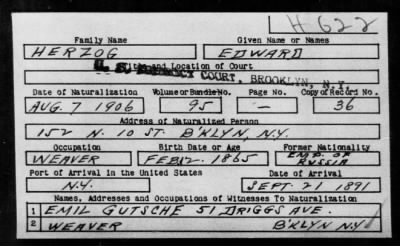 H-622
Family Name Given Name or Names
HERZOG EDWARD
Title and Location of Court
U. S. DISTRICT COURT, BROOKLYN, N.Y.
Date of Naturalization Volume or Bundle No. Page No. Copy of Record No.
AUG. 7 1906 95 — 36
Address of Naturalized Person
152 N. 10 ST. B'KLYN, N.Y.
Occupation Birth Date or Age Former Nationality
WEAVER FEB. 12. 1865 EMP. OF RUSSIA
Port of Arrival in the United States Date of Arrival
N.Y. SEPT. 21 1891
Names, Addresses and Occupations of Witnesses To Naturalization
1 EMIL GUTSCHE 51 DRIGGS AVE.
2 WEAVER B'KLYN N.Y.